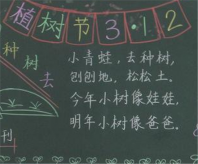 植树节3.12
种树去
小青蛙，去种树，
刨刨地，松松土。
今年小树像娃娃，
明年小树像爸爸。
刊